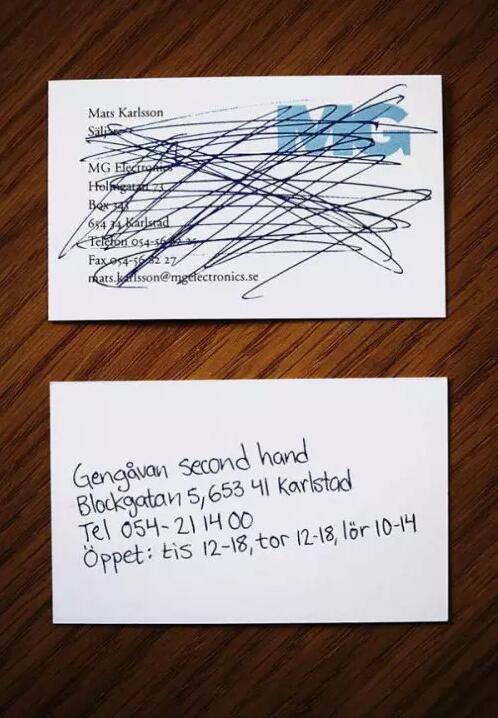 Mats Karlsson
Säljare
MG
MG Electronics
Holmgatan 23
Box 343
654 34 Karlstad
Telefon 054-56
Fax 054-56 82 27
mats.karlsson@mgelectronics.se
Gengåvan second hand
Blockgatan 5, 653 41 Karlstad
Tel 054-21 14 00
Öppet: tis 12-18, tor 12-18, lör 10-14